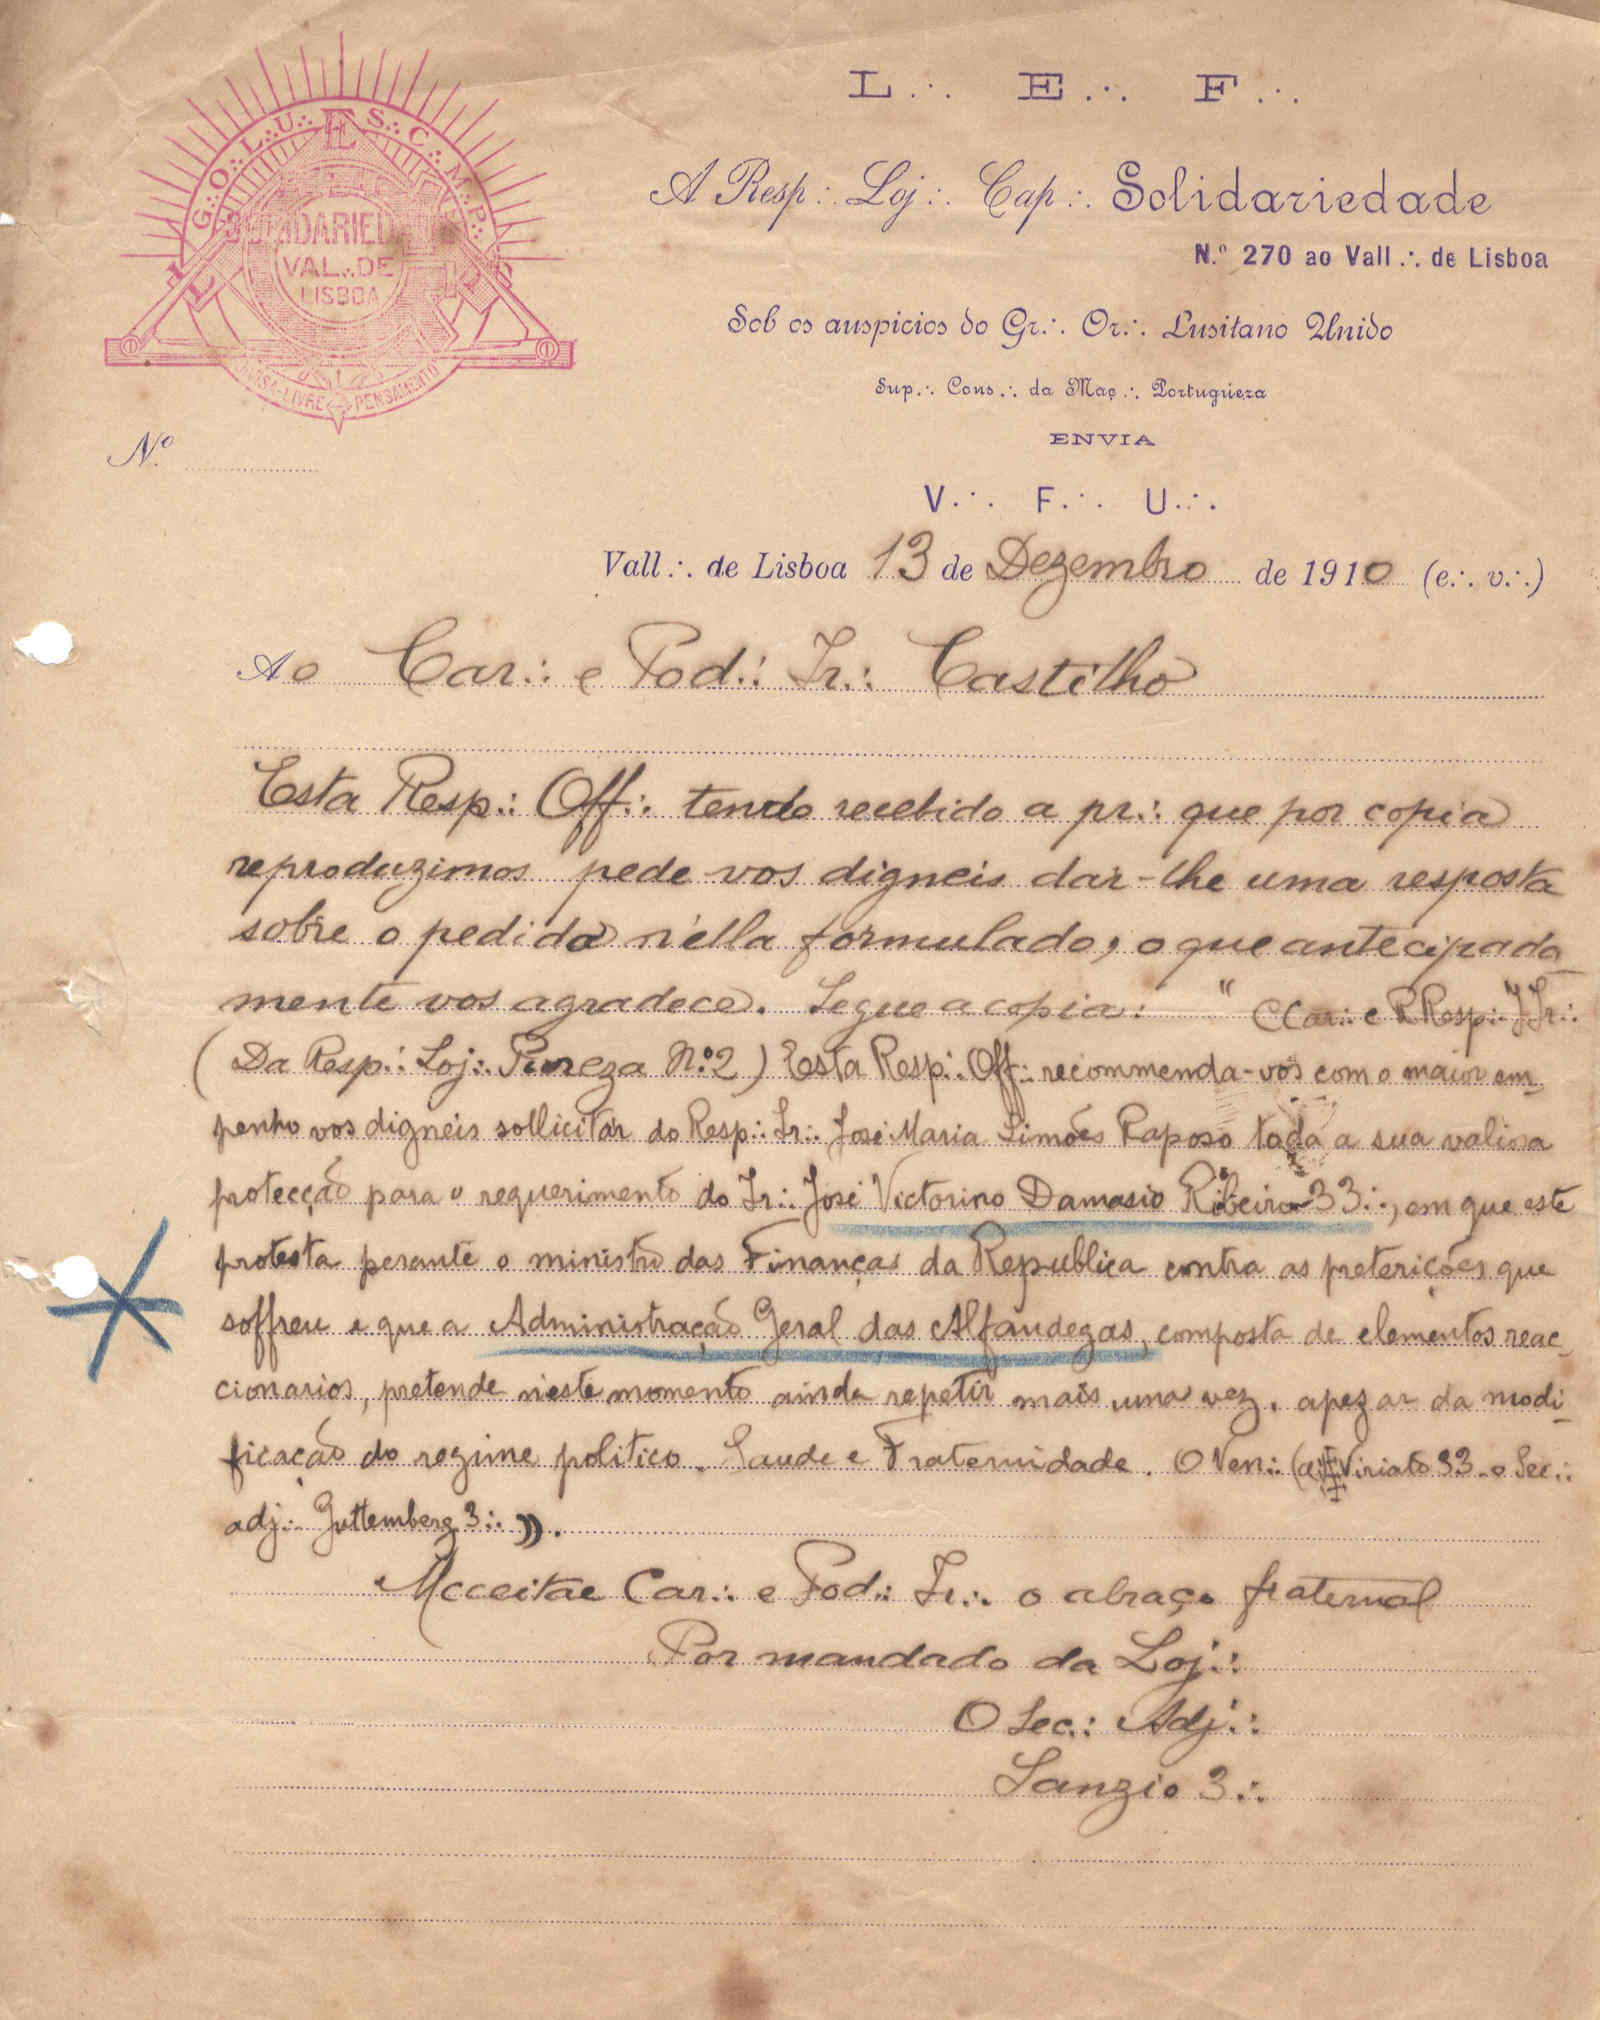 L∴ E∴ F∴
G∴O∴L∴U∴ E S∴C∴M∴P∴
SOLIDARIEDADE
VAL∴DE
LISBOA
LIVRE PENSAMENTO
A Resp∴ Loj∴ Cap∴ Solidariedade
N.º 270 ao Vall∴ de Lisboa
Sob os auspicios do Gr∴ Or∴ Lusitano Unido
Sup∴ Cons∴ da Maç∴ Portugueza
ENVIA
N.º
V∴ F∴ U∴
Vall∴ de Lisboa 13 de Dezembro de 1910 (e∴ v∴)
Ao Car∴ e Pod∴ Ir∴ Castilho
Esta Resp∴ Off∴ tendo recebido a pr∴ que por copia
reproduzimos pede vos digneis dar-lhe uma resposta
sobre o pedido n'ella formulado, o que antecipada
mente vos agradece. Segue a copia: "CCar∴ e RResp∴ IIr∴
(Da Resp∴ Loj∴ Pureza N.º 2) Esta Resp∴ Off∴ recommenda-vos com o maior em-
penho vos digneis sollicitar do Resp∴ Ir∴ José Maria Simões Raposo toda a sua valiosa
protecção para o requerimento do Ir∴ José Victorino Damasio Ribeiro 33∴, em que este
protesta perante o ministro das Finanças da Republica contra as preterições que
soffreu e que a Administração Geral das Alfandegas, composta de elementos reac-
cionarios, pretende n'este momento ainda repetir mais uma vez, apezar da modi-
ficação do regime politico. Saude e Fraternidade. O Ven∴ (a) Viriato 33 - o Sec∴
adj∴ Guttemberg 3∴ ».
Acceitae Car∴ e Pod∴ Ir∴ o abraço fraternal
Por mandado da Loj∴
O Sec∴ Adj∴
Sanzio 3∴